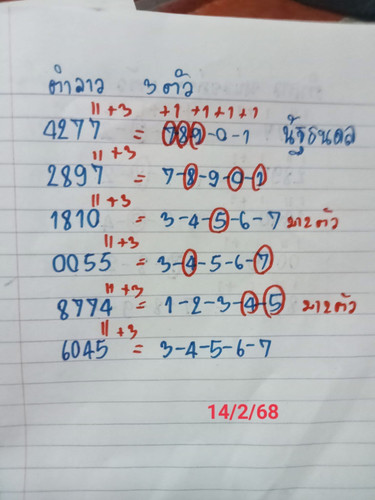 ตำลาว 3 ตัว
11+3 +1 +1+1+1
4277 = 789-0-1 นัฐธนดล
11+3
2897 = 7-8-9-0-1
11+3
1810 = 3-4-5-6-7 มา2ตัว
11+3
0055 = 3-4-5-6-7
11+3
8774 = 1-2-3-4-5 มา2ตัว
11+3
6045 = 3-4-5-6-7
14/2/68